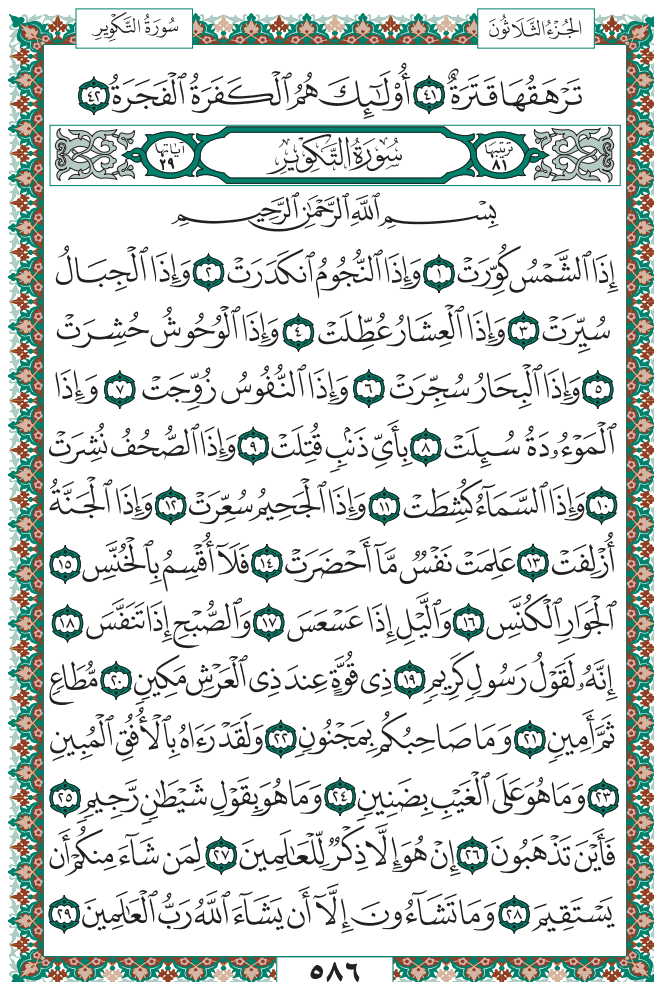 الجُزْءُ الثَّلَاثُونَ
سُورَةُ التَّكْوِيرِ
تَرْهَقُهَا قَتَرَةٌ ٤١ أُوْلَٰٓئِكَ هُمُ ٱلْكَفَرَةُ ٱلْفَجَرَةُ ٤٢
ترتيبها ٨١ سُورَةُ التَّكْوِيرِ آياتها ٢٩
بِسْمِ ٱللَّهِ ٱلرَّحْمَٰنِ ٱلرَّحِيمِ
إِذَا ٱلشَّمْسُ كُوِّرَتْ ١ وَإِذَا ٱلنُّجُومُ ٱنكَدَرَتْ ٢ وَإِذَا ٱلْجِبَالُ
سُيِّرَتْ ٣ وَإِذَا ٱلْعِشَارُ عُطِّلَتْ ٤ وَإِذَا ٱلْوُحُوشُ حُشِرَتْ
٥ وَإِذَا ٱلْبِحَارُ سُجِّرَتْ ٦ وَإِذَا ٱلنُّفُوسُ زُوِّجَتْ ٧ وَإِذَا
ٱلْمَوْءُۥدَةُ سُئِلَتْ ٨ بِأَيِّ ذَنۢبٍ قُتِلَتْ ٩ وَإِذَا ٱلصُّحُفُ نُشِرَتْ
١٠ وَإِذَا ٱلسَّمَآءُ كُشِطَتْ ١١ وَإِذَا ٱلْجَحِيمُ سُعِّرَتْ ١٢ وَإِذَا ٱلْجَنَّةُ
أُزْلِفَتْ ١٣ عَلِمَتْ نَفْسٌ مَّآ أَحْضَرَتْ ١٤ فَلَآ أُقْسِمُ بِٱلْخُنَّسِ ١٥
ٱلْجَوَارِ ٱلْكُنَّسِ ١٦ وَٱلَّيْلِ إِذَا عَسْعَسَ ١٧ وَٱلصُّبْحِ إِذَا تَنَفَّسَ ١٨
إِنَّهُۥ لَقَوْلُ رَسُولٍ كَرِيمٍ ١٩ ذِى قُوَّةٍ عِندَ ذِى ٱلْعَرْشِ مَكِينٍ ٢٠ مُّطَاعٍ
ثَمَّ أَمِينٍ ٢١ وَمَا صَاحِبُكُم بِمَجْنُونٍ ٢٢ وَلَقَدْ رَءَاهُ بِٱلْأُفُقِ ٱلْمُبِينِ
٢٣ وَمَا هُوَ عَلَى ٱلْغَيْبِ بِضَنِينٍ ٢٤ وَمَا هُوَ بِقَوْلِ شَيْطَٰنٍ رَّجِيمٍ ٢٥
فَأَيْنَ تَذْهَبُونَ ٢٦ إِنْ هُوَ إِلَّا ذِكْرٌ لِّلْعَٰلَمِينَ ٢٧ لِمَن شَآءَ مِنكُمْ أَن
يَسْتَقِيمَ ٢٨ وَمَا تَشَآءُونَ إِلَّآ أَن يَشَآءَ ٱللَّهُ رَبُّ ٱلْعَٰلَمِينَ ٢٩
٥٨٦